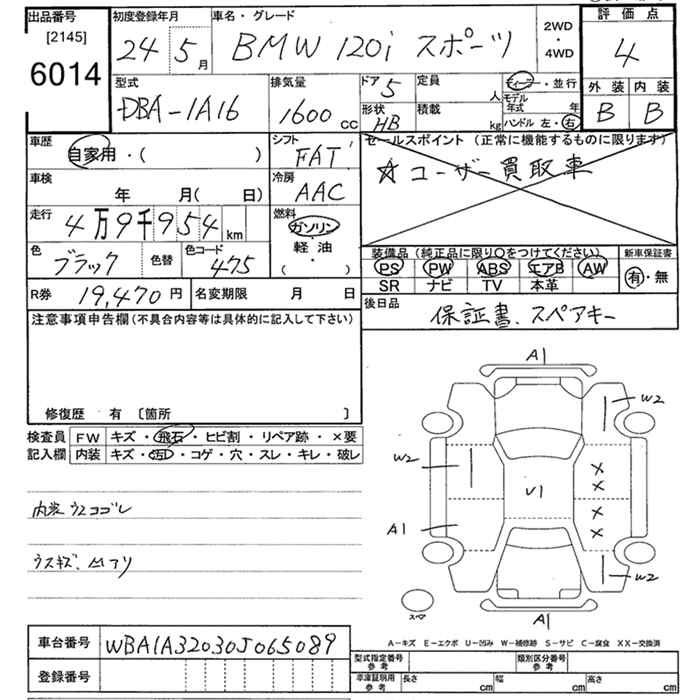 出品番号 初度登録年月 車名・グレード 2WD・4WD 評価点
[2145]
6014
24 5月 BMW 120i スポーツ
4
型式 排気量 ドア 5 定員 人 ディーラー・並行
DBA-1A16 1600cc 形状 HB 積載 kg モデル年式 年
ハンドル 左・右
外装 内装
B B
車歴 自家用・( )
シフト FAT
セールスポイント (正常に機能するものに限ります)
☆ユーザー買取車
車検 年 月( 日)
冷房 AAC
走行 4万9千954km
燃料 ガソリン
軽・油
( ・ )
色 ブラック 色替 色コード 475
装備品 (純正品に限り○をつけてください) 新車保証書
PS PW ABS エアB AW 有・無
SR ナビ TV 本革
R券 19,470円 名変期限 月 日
後日品 保証書、スペアキー
注意事項申告欄(不具合内容等は具体的に記入して下さい)
修復歴 有 [箇所 ]
検査員 FW キズ・飛石・ヒビ割・リペア跡・×要
記入欄 内装 キズ・汚・コゲ・穴・スレ・キレ・破レ
内装ウスヨゴレ
ウスキズ、凹アリ
A1
W2
W2
U1
A1
W2
A1
スペア
A-キズ E-エクボ U-凹み W-補修跡 S-サビ C-腐食 XX-交換済
車台番号 WBA1A32030J065089
登録番号
型式指定番号 参考 類別区分番号 参考
車庫証明用 参考 長さ cm 幅 cm 高さ cm